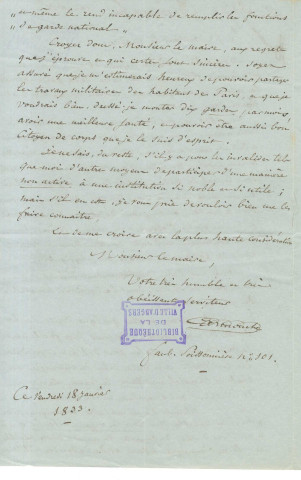 "même le rend incapable de remplir les fonctions
"de garde national. —
Croyez donc, Monsieur le maire, aux regrets
que j'éprouve et qui certes sont sincères. Soyez
assuré que je m'estimerais heureux de pouvoir partager
les travaux militaires des habitans de Paris, et que je
voudrais bien, dussé-je monter dix gardes par mois,
avoir une meilleure santé, et pouvoir être aussi bon
Citoyen de corps que je le suis d'esprit.
Je ne sais, du reste, s'il y a pour les invalides tels
que moi d'autre moyen de participer d'une manière
non active à une institution si noble et si utile;
mais s'il en est, je vous prie de vouloir bien me les
faire connaître.
avec la plus haute considération
Monsieur le maire,
Votre très humble et très
obéissant serviteur
BIBLIOTHÈQUE
DE LA
VILLE D'ANGERS
Faub. Poissonnière n° 101.
Ce Vendredi 18 janvier
1833.